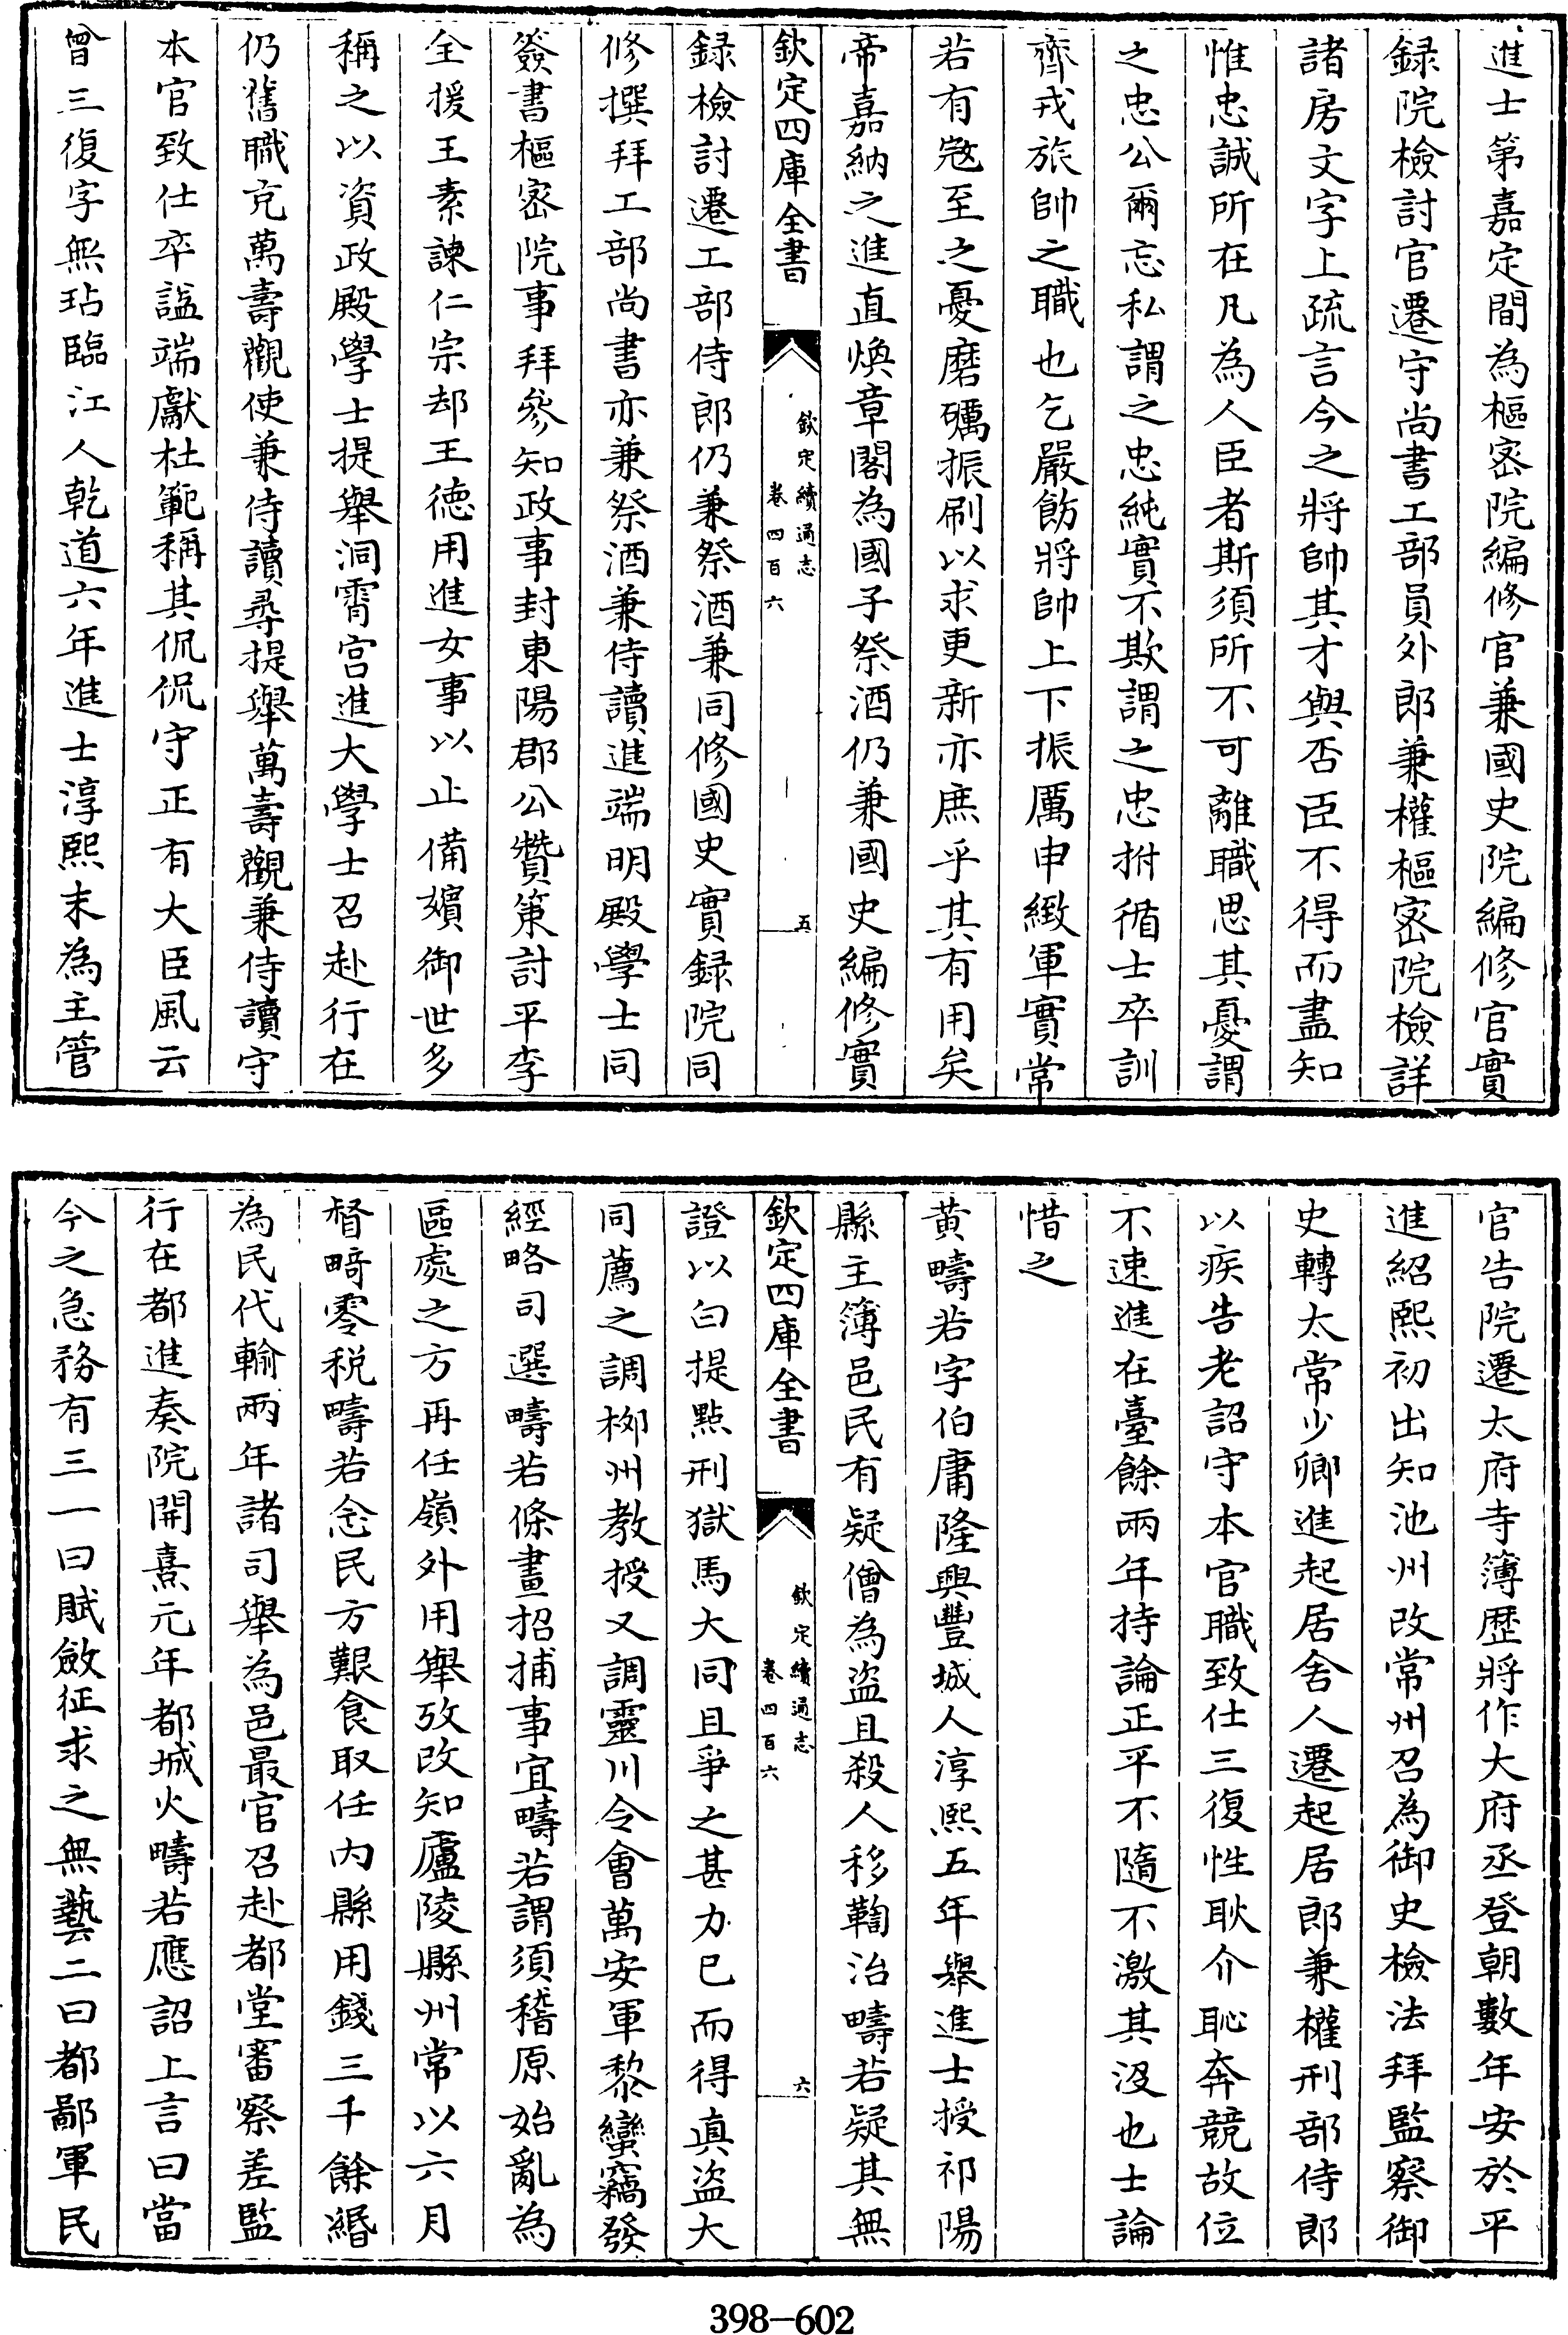 進士第嘉定間為樞密院編修官兼國史院編修官實
録院檢討官遷守尚書工部員外郎兼權樞密院檢詳
諸房文字上疏言今之將帥其才與否臣不得而盡知
惟忠誠所在凡為人臣者斯須所不可離職思其憂謂
之忠公爾忘私謂之忠純實不欺謂之忠拊循士卒訓
齊戎旅帥之職也乞嚴飭將帥上下振厲申緻軍實常
若有宼至之憂磨礪振刷以求更新亦庶乎其有用矣
帝嘉納之進直煥章閣為國子祭酒仍兼國史編修實
欽定四庫全書
欽定續通志
卷四百六
五
録檢討遷工部侍郎仍兼祭酒兼同修國史實録院同
修撰拜工部尚書亦兼祭酒兼侍讀進端明殿學士同
簽書樞密院事拜參知政事封東陽郡公贊策討平李
全援王素諫仁宗却王德用進女事以止備嬪御世多
稱之以資政殿學士提舉洞霄宫進大學士召赴行在
仍舊職充萬壽觀使兼侍讀尋提舉萬壽觀兼侍讀守
本官致仕卒諡端獻杜範稱其侃侃守正有大臣風云
曾三復字無玷臨江人乾道六年進士淳熙末為主管
官告院遷太府寺簿歴將作大府丞登朝數年安於平
進紹熙初出知池州改常州召為御史檢法拜監察御
史轉太常少卿進起居舍人遷起居郎兼權刑部侍郎
以疾告老詔守本官職致仕三復性耿介恥奔競故位
不速進在臺餘兩年持論正平不隨不激其沒也士論
惜之
黄疇若字伯庸隆興豐城人淳熙五年舉進士授祁陽
縣主簿邑民有疑僧為盜且殺人移鞫治疇若疑其無
欽定四庫全書
欽定續通志
卷四百六
六
證以白提點刑獄馬大同且爭之甚力已而得真盜大
同薦之調柳州教授又調靈川令會萬安軍黎蠻竊發
經略司選疇若條畫招捕事宜疇若謂須稽原始亂為
區處之方再任嶺外用舉攷改知廬陵縣州常以六月
督畸零税疇若念民方艱食取任内縣用錢三千餘緡
為民代輸兩年諸司舉為邑最官召赴都堂審察差監
行在都進奏院開熹元年都城火疇若應詔上言曰當
今之急務有三一曰賦斂征求之無藝二曰都鄙軍民
398-602